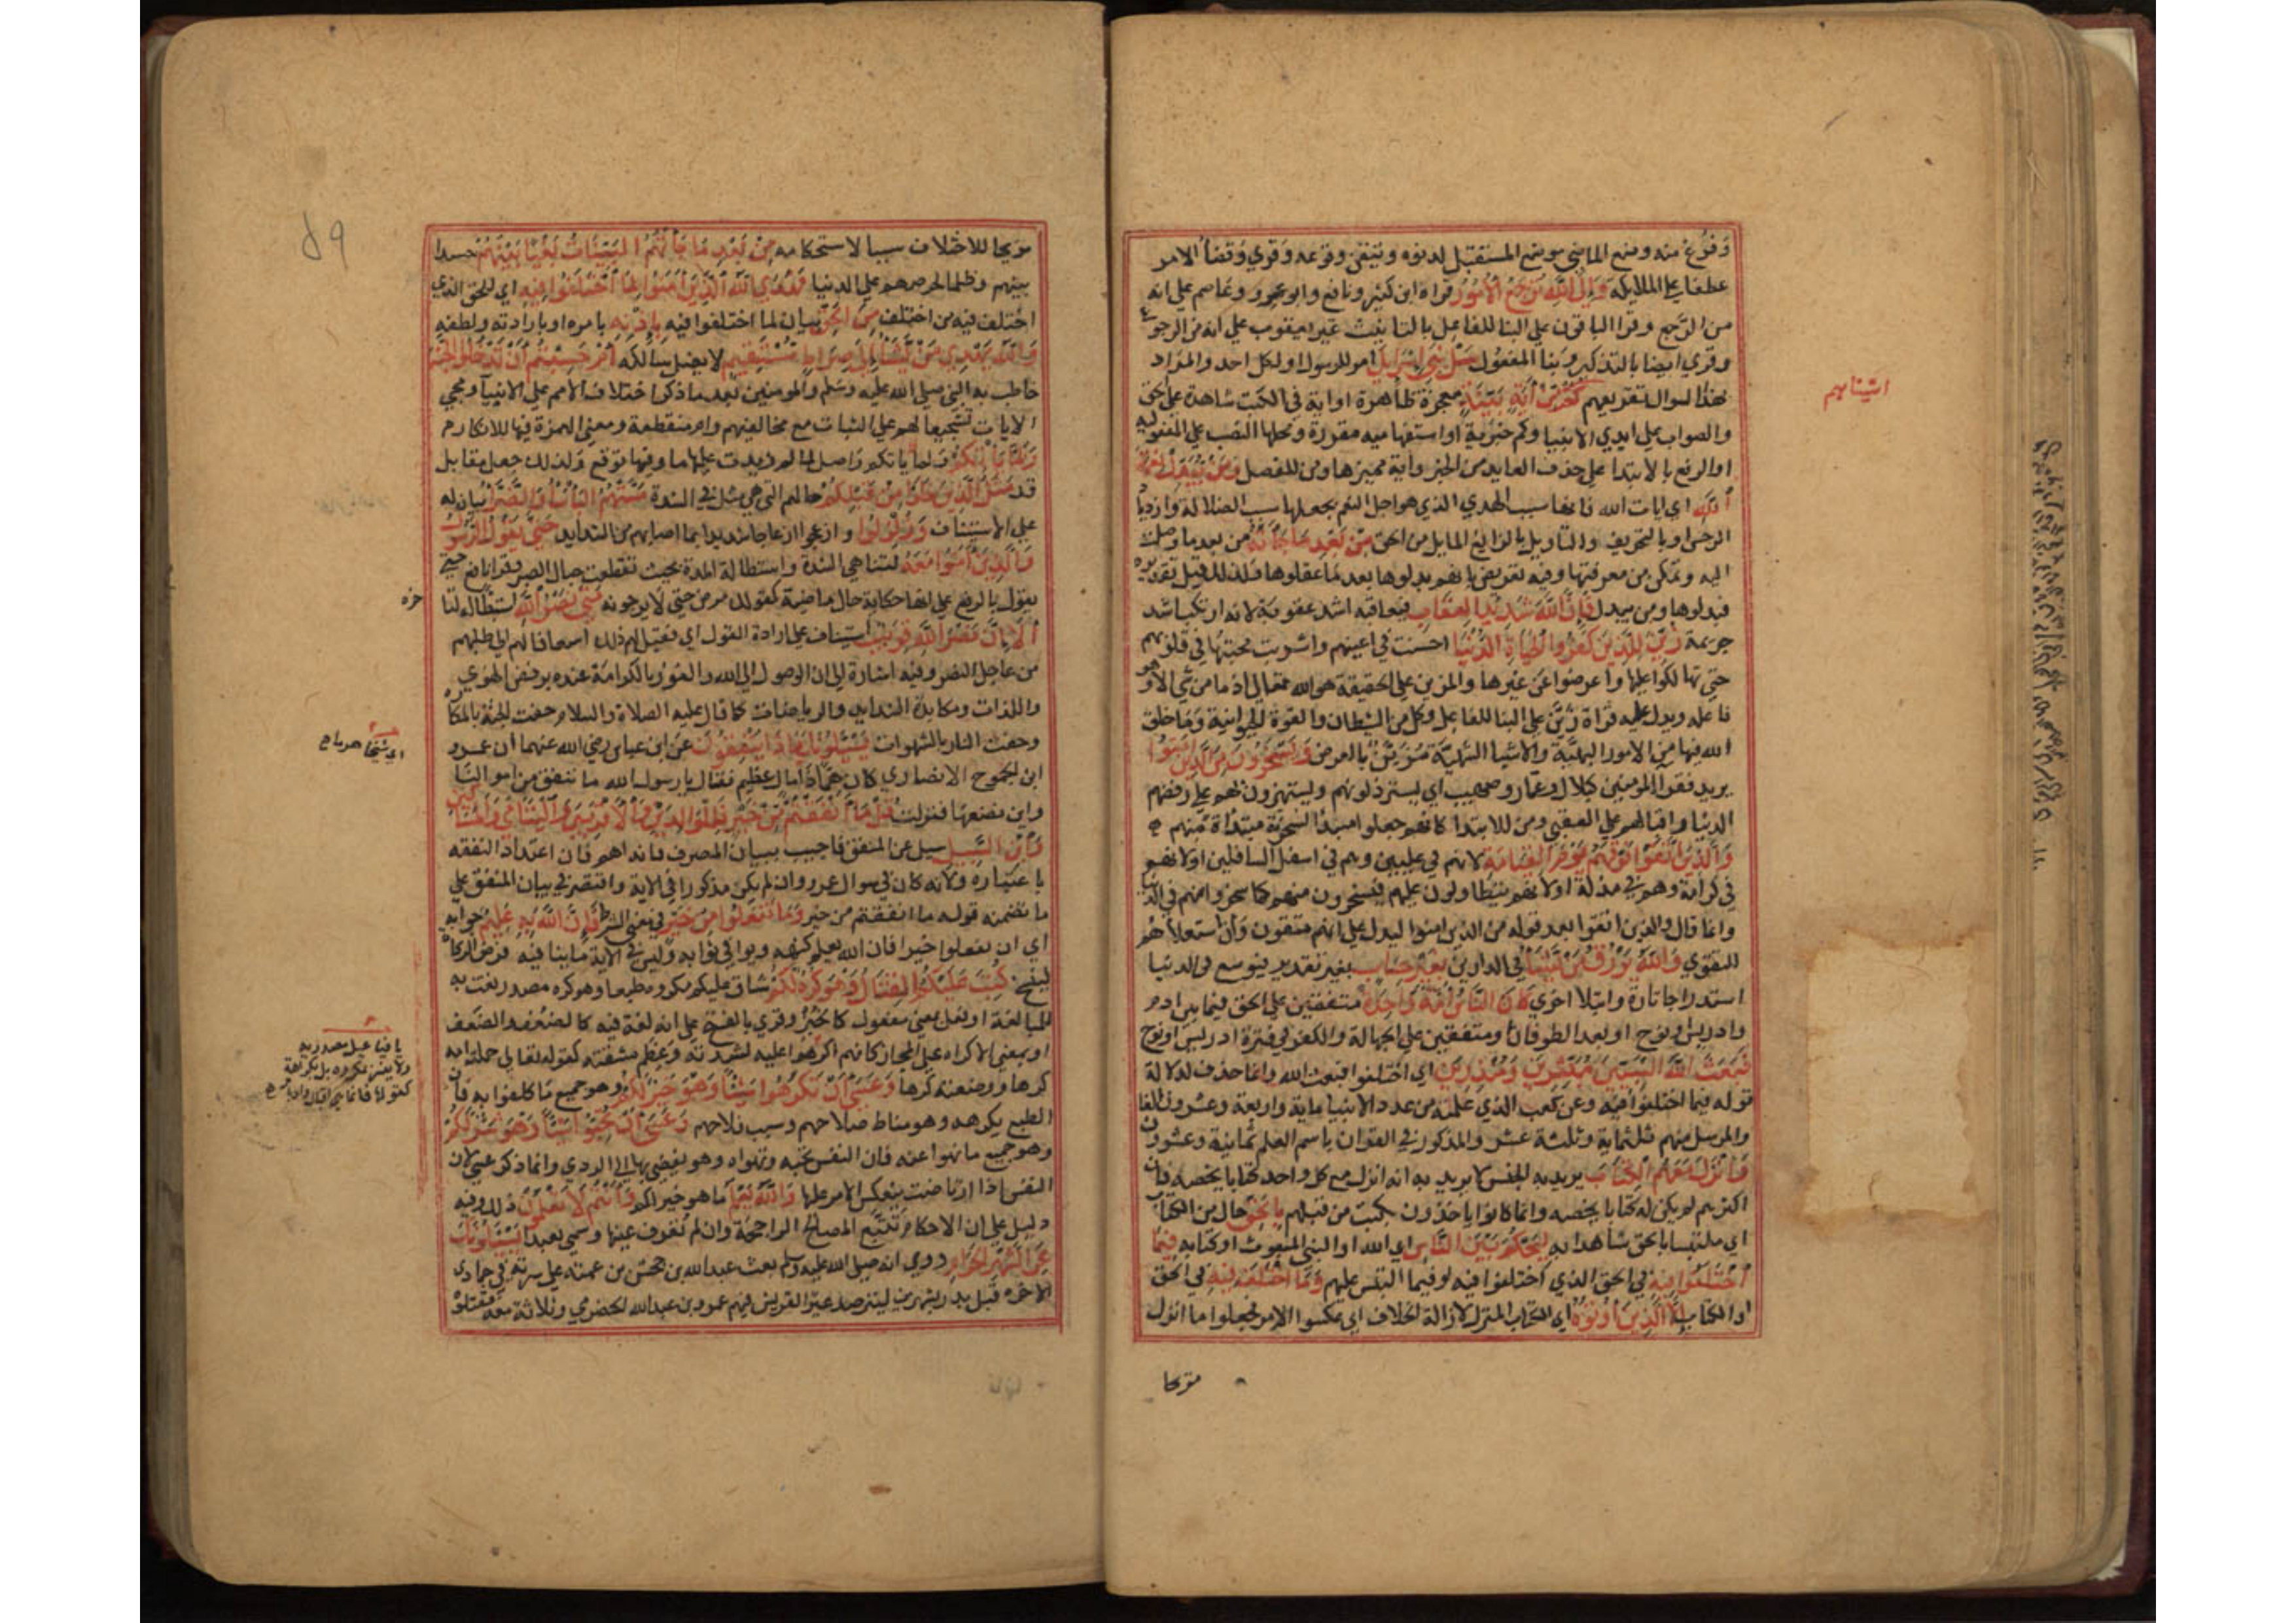 وفرغ منه وضع الماضي موضع المستقبل لدنوه وتيقن وقوعه وقري وقضأ الامر
عطفا على الملايكه وَاِلَى اللَّهِ تُرْجَعُ الْاُمُورُ قراه ابن كثير ونافع وابو عمرو وعاصم على انه
من الرجع وقرا الباقون على البنا للفاعل بالتانيث غير يعقوب على انه من الرجوع
وقري ايضا بالتذكير وبنا المفعول سَلْ بَنِي اِسْرَايِلَ امر للرسول او لكل احد والمراد
بهذا السوال تقريعهم كَمْ اٰتَيْنَاهُمْ مِنْ اٰيَةٍ بَيِّنَةٍ معجزة ظاهرة او اية في الكتب شاهدة على الحق
والصواب على ايدي الانبيا وكم خبرية او استفهامية مقررة ومحلها النصب على المفعوليه
او الرفع بالابتدا على حذف العايد من الخبر واية مميزها ومن للفصل وَمَنْ يُبَدِّلْ نِعْمَةَ
اللَّهِ اي ايات الله فانها سبب الهدي الذي هو اجل النعم بجعلها سبب الضلالة وازدياد
الرجس او بالتحريف والتاويل بالزايغ المايل من الحق مِنْ بَعْدِ مَا جَاَتْهُ من بعد ما وصلت
اليه وتمكن من معرفتها وفيه تعريض بانهم بدلوها بعد ما عقلوها ولذلك قيل تقديره
فبدلوها ومن يبدل فَاِنَّ اللَّهَ شَدِيدُ الْعِقَابِ فيعاقبه اشد عقوبة لانه ارتكب اشد
جريمة زُيِّنَ لِلَّذِينَ كَفَرُوا الْحَيَاةُ الدُّنْيَا احسنت في اعينهم واشربت محبتها في قلوبهم
حتى تهالكوا عليها واعرضوا عن غيرها والمزين على الحقيقة هو الله تعالى اذ ما من شي الا وهو
فاعله ويدل عليه قراة زَيَّنَ على البنا للفاعل وكل من الشيطان والقوة الحيوانية وما خلق
الله فيها من الامور البهيّة والاشيا الشهيّة مُزَيِّنٌ بالعرض وَيَسْخَرُونَ مِنَ الَّذِينَ اٰمَنُوا
يريد فقرا المومنين كبلال وعمار وصهيب اي يسترذلونهم ويستهزون بهم على رفضهم
الدنيا واقبالهم على العقبي ومن للابتدا كانهم جعلوا مبدا السخرية مبتداة منهم
وَالَّذِينَ اتَّقَوْا فَوْقَهُمْ يَوْمَ الْقِيَامَةِ لانهم في عليين وهم في اسفل السافلين او لانهم
في كرامة وهم في مذلة او لانهم يتطاولون عليهم فيسخرون منهم كما سخروا منهم في الدنيا
وانما قال والذين اتقوا بعد قوله من الذين امنوا ليدل على انهم متقون وان استعلاهم
للتقوي وَاللَّهُ يَرْزُقُ مَنْ يَشَا في الدارين بِغَيْرِ حِسَابٍ بغير تقدير فيوسع في الدنيا
استدراجا تارة وابتلا اخري كَانَ النَّاسُ اُمَّةً وَاحِدَةً متفقين على الحق فيما بين ادم
وادريس او نوح او بعد الطوفان او متفقين على الجهالة والكفر في فترة ادريس او نوح
فَبَعَثَ اللَّهُ النَّبِيِّينَ مُبَشِّرِينَ وَمُنْذِرِينَ اي اختلفوا فبعث الله وانما حذف لدلالة
قوله فيما اختلفوا فيه وعن كعب الذي علمته من عدد الانبيا ماية واربعة وعشرون الفا
والمرسل منهم ثلثماية وثلثة عشر والمذكور في القران باسم العلم ثمانية وعشرون
وَاَنْزَلَ مَعَهُمُ الْكِتَابَ يريد به الجنس لا يريد به انه انزل مع كل واحد كتابا يخصه فان
اكثرهم لم يكن له كتابا يخصه وانما كانوا ياخذون بكتب من قبلهم بِالْحَقِّ حال من الكتاب
اي ملتبسا بالحق شاهدا به لِيَحْكُمَ بَيْنَ النَّاسِ اي الله او النبي المبعوث او كتابه فِيمَا
اخْتَلَفُوا فِيهِ في الحق الذي اختلفوا فيه او فيما التبس عليهم وَمَا اخْتَلَفَ فِيهِ في الحق
او الكتاب اِلَّا الَّذِينَ اُوتُوهُ اي الكتاب المنزل لازالة الخلاف اي عكسوا الامر فجعلوا ما انزل
مزيحا
اتيناهم
مزيحا للاختلاف سببا لاستحكامه مِنْ بَعْدِ مَا جَاَتْهُمُ الْبَيِّنَاتُ بَغْيًا بَيْنَهُمْ حسدا
بينهم وظلما لحرصهم على الدنيا فَهَدَي اللَّهُ الَّذِينَ اٰمَنُوا لِمَا اخْتَلَفُوا فِيهِ اي للحق الذي
اختلف فيه من اختلف مِنَ الْحَقِّ بيان لما اختلفوا فيه بِاِذْنِهِ بامره او بارادته ولطفه
وَاللَّهُ يَهْدِي مَنْ يَّشَا اِلَى صِرَاطٍ مُسْتَقِيمٍ لا يضل سالكه اَمْ حَسِبْتُمْ اَنْ تَدْخُلُوا الْجَنَّةَ
خاطب به النبي صلى الله عليه وسلم والمومنين بعد ما ذكر اختلاف الامم على الانبيآ ومجي
الايات تشجيعا لهم على الثبات مع مخالفيهم وام منقطعة ومعنى الهمزة فيها للانكار
وَلَمَّا يَاْتِكُمْ ولم ياتكم واصل لما لم زيدت عليها ما وفيها توقع ولذلك جعل مقابل
قد مَثَلُ الَّذِينَ خَلَوْا مِنْ قَبْلِكُمْ حالهم التي هي مثل في الشدة مَسَّتْهُمُ الْبَاْسَا وَالضَّرَّا بيان له
على الاستيناف وَزُلْزِلُوا وازعجوا ازعاجا شديدا بما اصابهم من الشدايد حَتَّى يَقُولَ الرَّسُولُ
وَالَّذِينَ اٰمَنُوا مَعَهُ لتناهي الشدة واستطالة المدة بحيث تقطعت حبال الصبر وقرا نافع
يقول بالرفع على انها حكاية حال ماضية كقولك مرض حتى لا يرجونه مَتَى نَصْرُ اللَّهِ استبطا له لتا
اَلَا اِنَّ نَصْرَ اللَّهِ قَرِيبٌ استيناف على ارادة القول اي فقيل لهم ذلك اسعافا لهم الى طلبهم
من عاجل النصر وفيه اشارة الى ان الوصول الى الله والفوز بالكرامة عنده برفض الهوي
واللذات ومكابدة الشدايد والرياضات كما قال عليه الصلاة والسلام حفت الجنة بالمكاره
وحفت النار بالشهوات يَسْئَلُونَكَ مَاذَا يُنْفِقُونَ عن ابن عباس رضي الله عنهما ان عمرو
ابن الجموح الانصاري كان همّا ذا مال عظيم فقال يا رسول الله ما ننفق من اموالنا
واين نضعها فنزلت قُلْ مَا اَنْفَقْتُمْ مِّنْ خَيْرٍ فَلِلْوَالِدَيْنِ وَالْاَقْرَبِينَ وَالْيَتَامَى وَالْمَسَاكِينِ
وَابْنِ السَّبِيلِ سيل عن المنفق فاجيب ببيان المصرف فانه اهم فان اعتداد النفقه
باعتباره ولانه كان في سوال عمرو وان لم يكن مذكورا في الاية واقتصر في بيان المنفق على
ما تضمنه قوله ما انفقتم من خير وَمَا تَفْعَلُوا مِنْ خَيْرٍ في معنى الشرط فَاِنَّ اللَّهَ بِهِ عَلِيمٌ جوابه
اي ان تفعلوا خيرا فان الله يعلم كنهه ويوافي ثوابه وليس في الاية ما ينافيه فرض الزكاة
لينسخ كُتِبَ عَلَيْكُمُ الْقِتَالُ وَهُوَ كُرْهٌ لَكُمْ شاق عليكم مكروه طبعا وهو كره مصدر نعت به
للمبالغة او فعل بمعنى مفعول كالخبز وقري بالفتح على انه لغة فيه كالضُعف والضَعف
او بمعنى الاكراه على المجاز كانهم اكرهوا عليه لشدته وعظم مشقته كقوله تعالى حملته امه
كرها ووضعته كرها وَعَسَى اَنْ تَكْرَهُوا شَيْئًا وَهُوَ خَيْرٌ لَكُمْ وهو جميع ما كلفوا به فان
الطبع يكرهه وهو مناط صلاحهم وسبب فلاحهم وَعَسَى اَنْ تُحِبُّوا شَيْئًا وَهُوَ شَرٌّ لَكُمْ
وهو جميع ما نهوا عنه فان النفس تحبه وتهواه وهو يفضي بها الى الردي وانما ذكر عسى لان
النفس اذا ارتاضت ينعكس الامر عليها وَاللَّهُ يَعْلَمُ ما هو خير لكم وَاَنْتُمْ لَا تَعْلَمُونَ ذلك وفيه
دليل على ان الاحكام تتبع المصالح الراجحة وان لم تعرف عينها وسمي بعبد يَسْئَلُونَكَ
عَنِ الشَّهْرِ الْحَرَامِ روي انه صلى الله عليه وسلم بعث عبد الله بن جحش بن عمته على سرية في جمادى
الاخره قبل بدر بشهرين ليترصد عيرا لقريش فيهم عمرو بن عبد الله الحضرمي وثلاثة معه فقتلوه